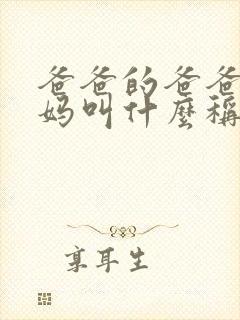 爸爸的爸爸
妈叫什麽稱
享耳生